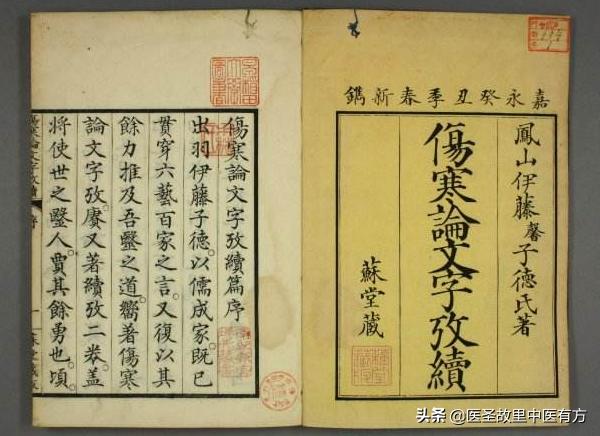 嘉永癸丑季春新鐫
鳳山伊藤馨子德氏著
傷寒論文字攷續
蘇堂藏
傷寒論文字攷續篇序
出羽伊藤子德。以儒成家。既已
貫穿六藝百家之言。又復以其
餘力推及吾毉之道。嚮著傷寒
論文字攷。賡又著續攷二卷。蓋
將使世之毉人。賈其餘勇也。頃
头条 @医圣故里中医有方